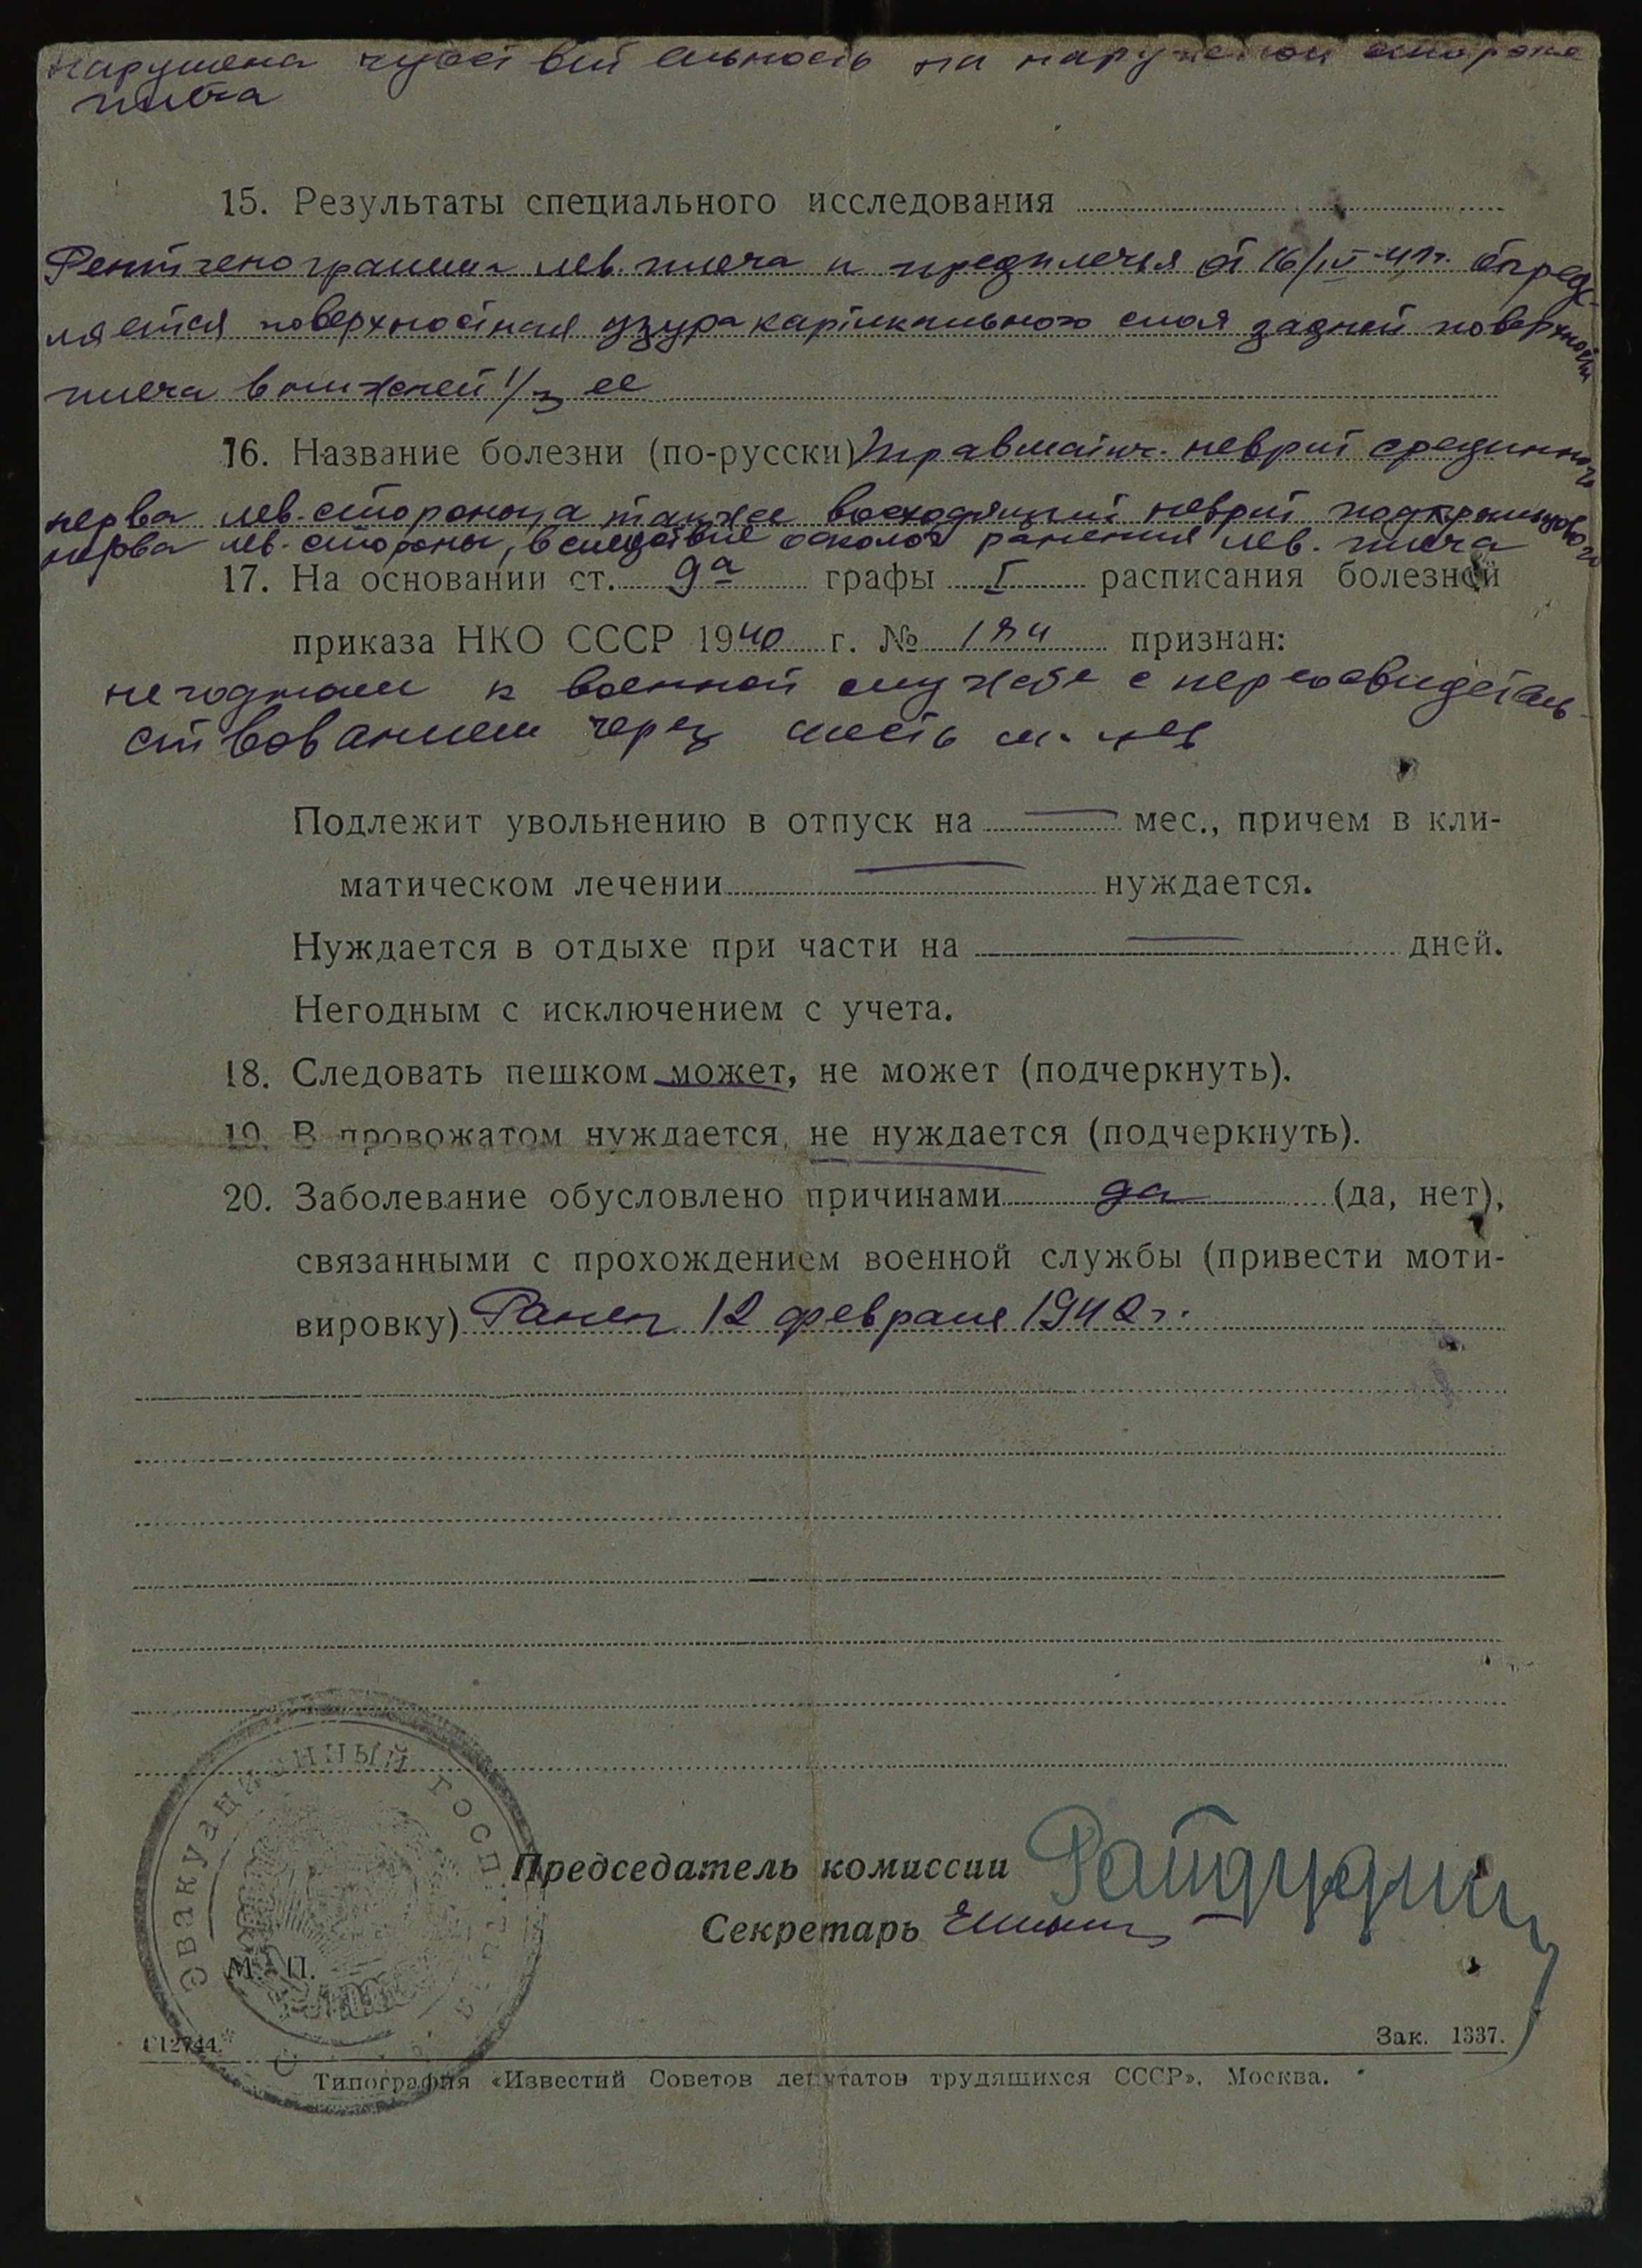 Нарушена чувствительность на наружной стороне
плеча
15. Результаты специального исследования
Рентгенограмма лев. плеча и предплечья от 16/IV опреде-
ляется поверхностная узура картикального слоя задней поверхности
плеча в нижней 1/3 ее
16. Название болезни (по-русски) Травматич. неврит срединного
нерва лев. стороны, а также восходящий неврит подкрыльцового
нерва лев. стороны, вследствие осколоч ранения лев. плеча
17. На основании ст. 9а графы I расписания болезней
приказа НКО СССР 1940 г. № 184 признан:
негодным к военной службе с переосвидетель-
ствованием через шесть м-цев
Подлежит увольнению в отпуск на — мес., причем в кли-
матическом лечении — нуждается.
Нуждается в отдыхе при части на — дней.
Негодным с исключением с учета.
18. Следовать пешком может, не может (подчеркнуть).
19. В провожатом нуждается, не нуждается (подчеркнуть).
20. Заболевание обусловлено причинами да (да, нет),
связанными с прохождением военной службы (привести моти-
вировку) Ранен 12 февраля 1942 г.
Эвакуационный госп
Председатель комиссии
Секретарь
М. П.
Г12744.
Зак. 1337.
Типография «Известий Советов депутатов трудящихся СССР». Москва.